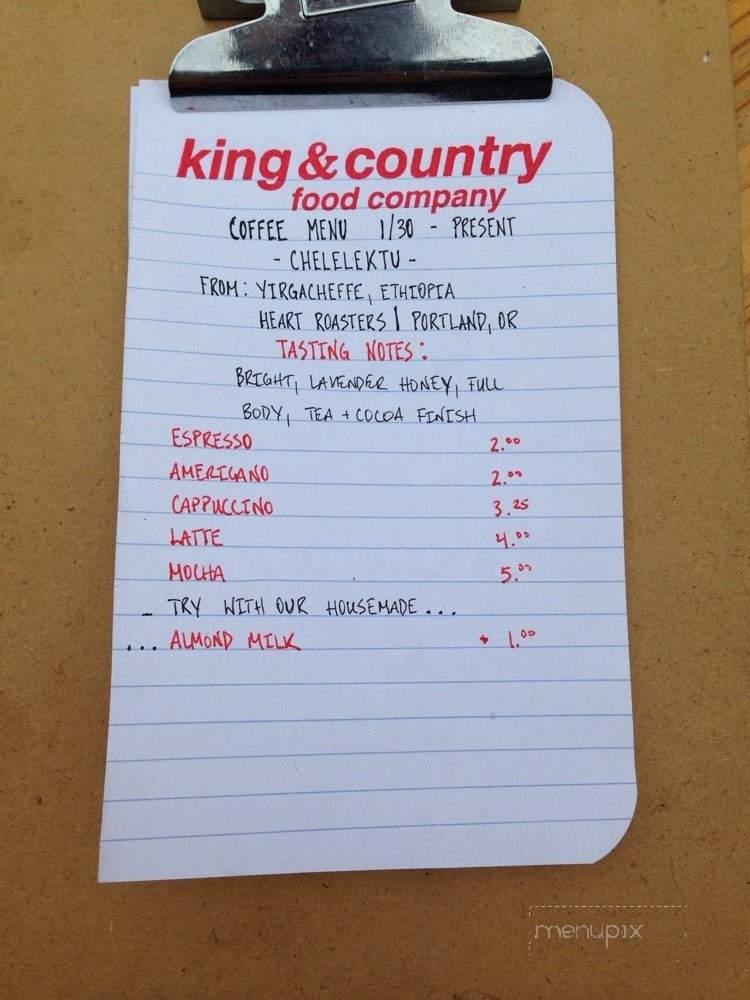 king & country
food company
COFFEE MENU 1/30 - PRESENT
- CHELELEKTU -
FROM: YIRGACHEFFE, ETHIOPIA
HEART ROASTERS | PORTLAND, OR
TASTING NOTES:
BRIGHT, LAVENDER HONEY, FULL
BODY, TEA + COCOA FINISH
ESPRESSO 2.00
AMERICANO 2.00
CAPPUCCINO 3.25
LATTE 4.00
MOCHA 5.00
- TRY WITH OUR HOUSEMADE...
... ALMOND MILK + 1.00
menupix